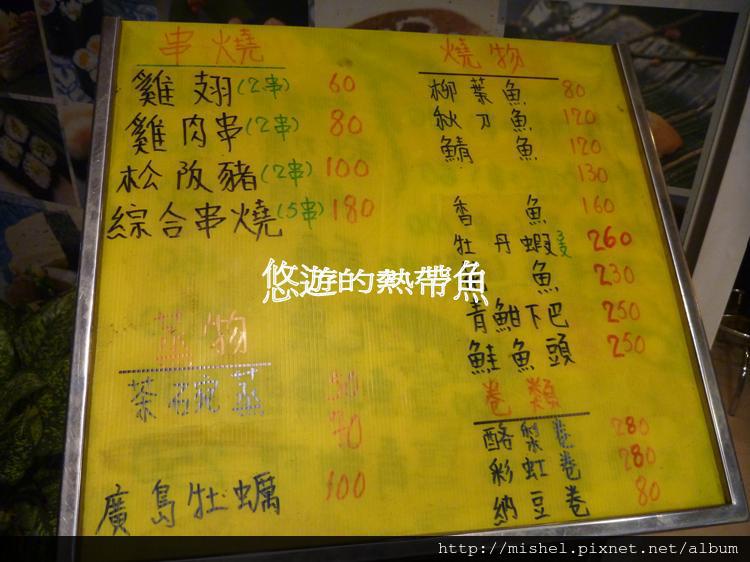 串燒
雞翅(2串) 60
雞肉串(2串) 80
松阪豬(2串) 100
綜合串燒(5串) 180
蒸物
茶碗蒸 50
70
廣島牡蠣 100
燒物
柳葉魚 80
秋刀魚 120
鯖魚 120
130
香魚 160
牡丹蝦 260
魚 230
青魽下巴 250
鮭魚頭 250
卷類
酪梨卷 280
彩虹卷 280
納豆卷 80
悠遊的熱帶魚
http://mishel.pixnet.net/album